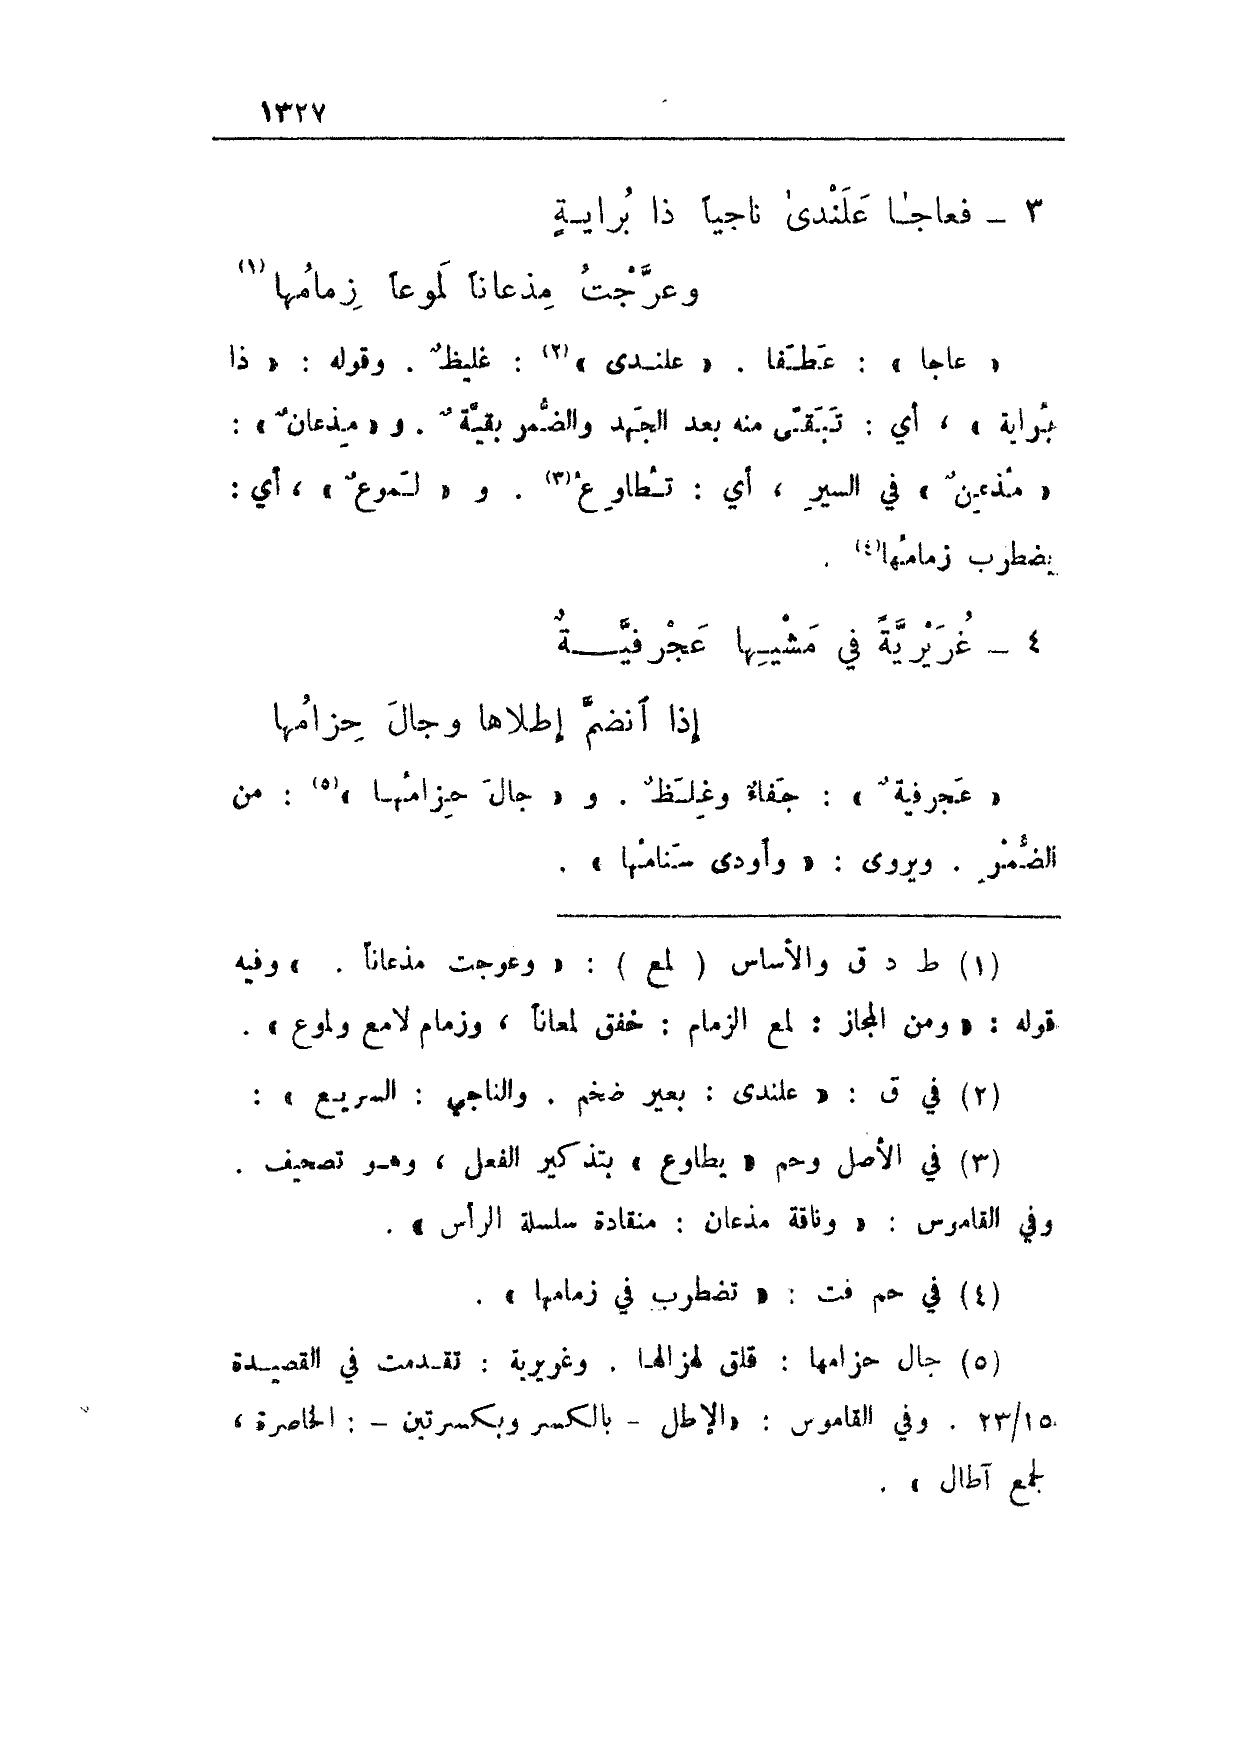 ١٣٢٧
٣ ــ فعاجـا عَلَنْدىٰ ناجياً ذا بُرايــةٍ
وعرَّجْتُ مِذعاناً لَموعاً زِمامُها(١)
« عاجا » : عَطَفا . « علندى »(٢) : غليظٌ . وقوله : « ذا
بُراية » ، أي : تَبَقّى منه بعد الجَهد والضُّمر بقيَّةٌ . و « مِذعانٌ » :
« مُذعِنٌ » في السيرِ ، أي : تُطاوِعُ(٣) . و « لَموعٌ » ، أي :
يضطرب زمامُها(٤) .
٤ ــ غُرَيْرِيَّةً في مَشْيِها عَجْرفيَّــةٌ
إذا ٱنضمَّ إطلاها وجالَ حِزامُها
« عَجرفيةٌ » : جَفاءٌ وغِلَظٌ . و « جالَ حِزامُها »(٥) : من
الضُّمْرِ . ويروى : « وأودى سَنامُها » .
(١) ط د ق والأساس ( لمع ) : « وعوجت مذعاناً . » وفيه
قوله : « ومن المجاز : لمع الزمام : خفق لمعاناً ، وزمام لامع ولموع » .
(٢) في ق : « علندى : بعير ضخم . والناجي : السريع » :
(٣) في الأصل وحم « يطاوع » بتذكير الفعل ، وهو تصحيف .
وفي القاموس : « وناقة مذعان : منقادة سلسلة الرأس » .
(٤) في حم فت : « تضطرب في زمامها » .
(٥) جال حزامها : قلق لهزالها . وغريرية : تقدمت في القصيدة
٢٣/١٥ . وفي القاموس : «الإطل – بالكسر وبكسرتين – : الخاصرة ،
لجمع آطال » .